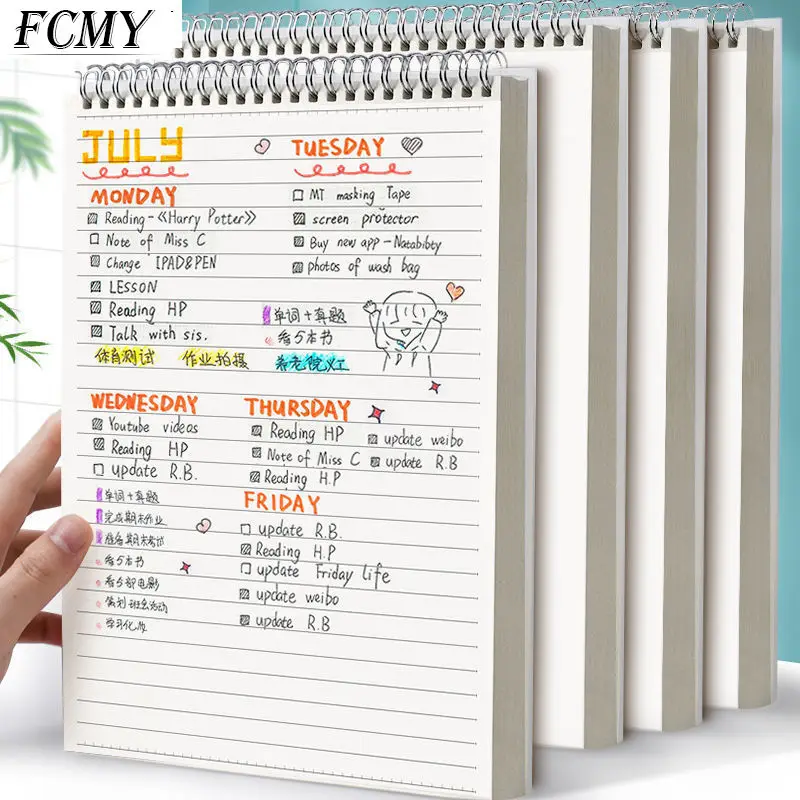 FCMY
JULY
MONDAY
Reading-《Harry Potter》
Note of Miss C
Change IPAD&PEN
LESSON
Reading HP
Talk with sis.
体育测试 作业拍摄 养老院义工
TUESDAY
MT masking Tape
screen protector
Buy new app-Natabibty
photos of wash bag
单词+真题
看5本书
WEDNESDAY
Youtube videos
Reading HP
update R.B.
单词+真题
完成期末作业
准备期末考试
看5本书
看5部电影
策划班会活动
学习化妆
THURSDAY
Reading HP update weibo
Note of Miss C update R.B
Reading H.P
FRIDAY
update R.B.
Reading H.P
update Friday life
update weibo
update R.B